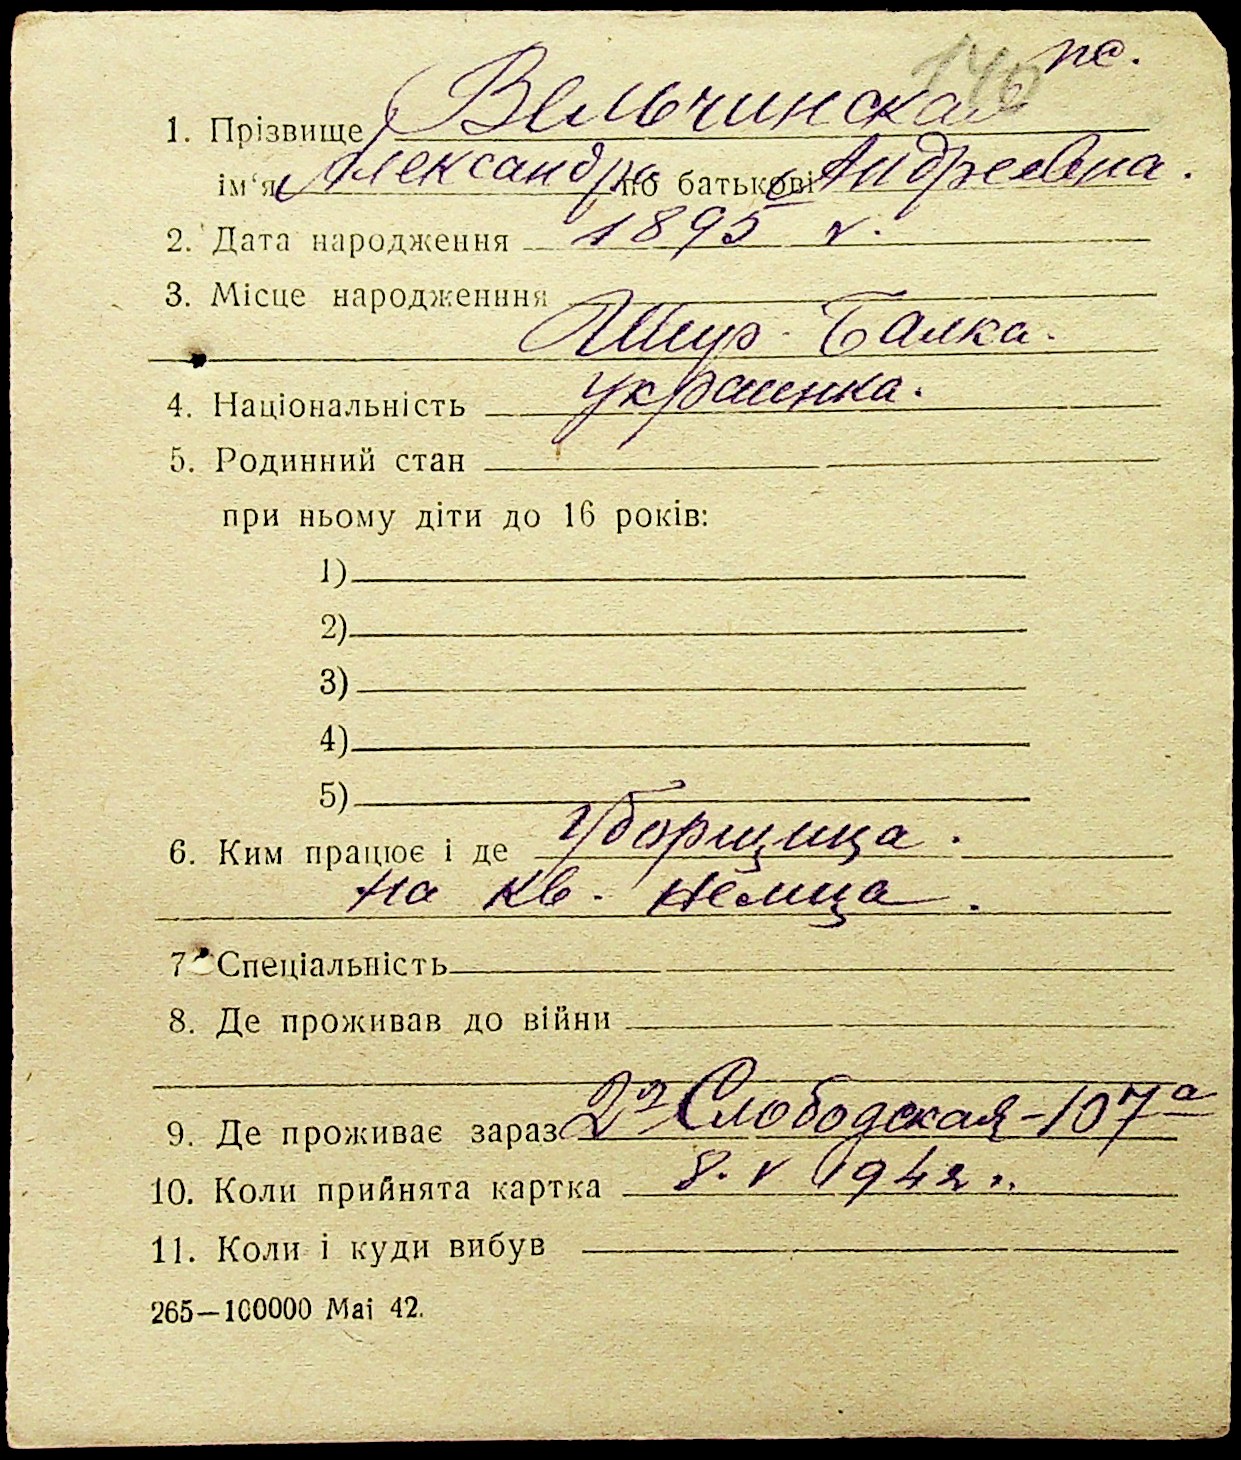 140 пс.
1. Прізвище Вельчинская
ім'я Александра по батькові Андреевна.
2. Дата народження 1895 г.
3. Місце народженння
Шир-Балка.
4. Національність украинка.
5. Родинний стан
при ньому діти до 16 років:
1)
2)
3)
4)
5)
6. Ким працює і де Уборщица.
на кв. немца.
7. Спеціальність
8. Де проживав до війни
9. Де проживає зараз 2я Слободская-107а
10. Коли прийнята картка 8. V 1942 г.
11. Коли і куди вибув
265—100000 Маі 42.